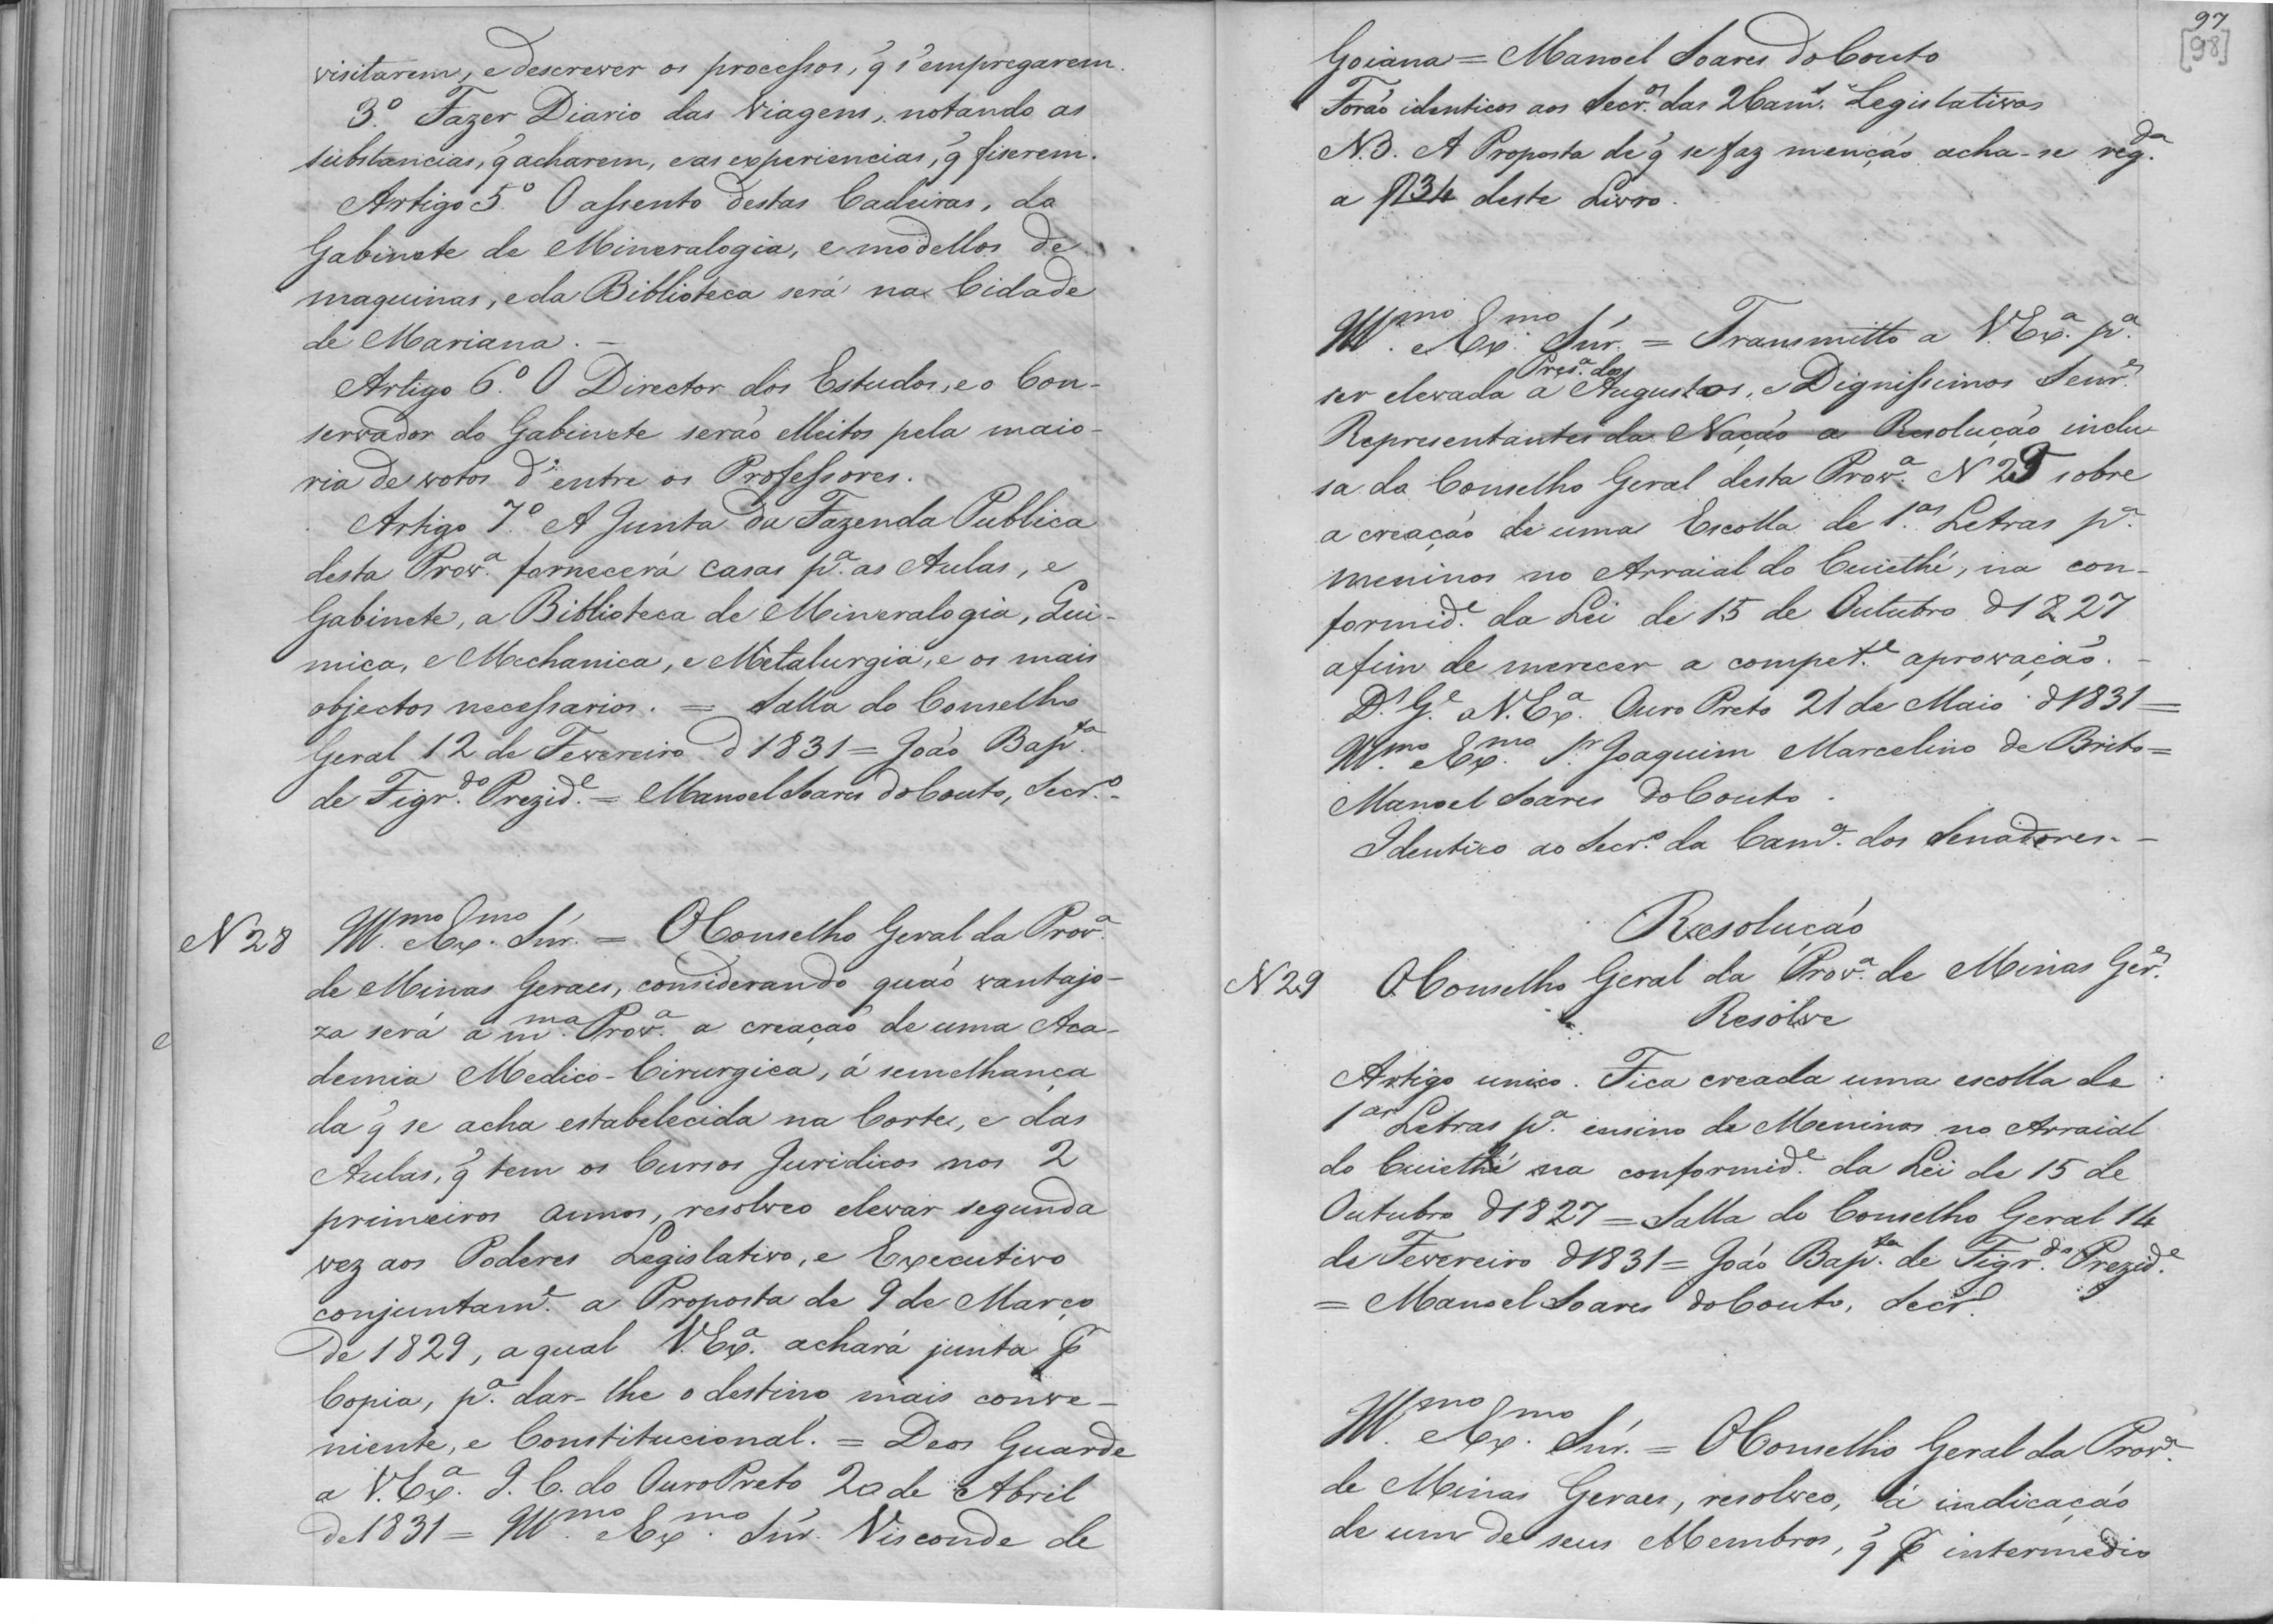 visitarem, e descrever os processos, q̃ s'empregarem.
3.º Fazer Diario das Viagens, notando as
substancias, q̃ acharem, e as experiencias, q̃ fiserem.
Artigo 5.º O assento destas Cadeiras, do
Gabinete de Mineralogia, e modellos de
maquinas, e da Biblioteca será na Cidade
de Mariana. -
Artigo 6.º O Director dos Estudos, e o Con-
servador do Gabinete serão elleitos pela maio-
ria de votos d'entre os Professores.
Artigo 7.º A Junta da Fazenda Publica
desta Prov.ª fornecerá casas p.ª as Aulas, e
Gabinete, a Biblioteca de Mineralogia, Qui-
mica, e Mechanica, e Metalurgia, e os mais
objectos necessarios. = Salla do Conselho
Geral 12 de Fevereiro d 1831 = João Bap.ta
de Figr.do Prezid.e = Manoel Soares do Couto, Secr.º -
N 28 Ill.mo e Ex.mo Snr. = O Conselho Geral da Prov.ª
de Minas Geraes, considerando quão vantajo-
za será a m.ma Prov.ª a creação de uma Aca-
demia Medico-Cirurgica, á semelhança
da q̃ se acha estabelecida na Corte, e das
Aulas, q̃ tem os Cursos Juridicos nos 2
primeiros annos, resolveo elevar segunda
vez aos Poderes Legislativo, e Executivo
conjuntam.e a Proposta de 9 de Março
de 1829, a qual V. Ex.ª achará junta p̃
Copia, p.ª dar-lhe o destino mais conve-
niente, e Constitucional. = Deos Guarde
a V. Ex.ª I. C. do Ouro Preto 20 de Abril
de 1831 = Ill.mo e Ex.mo Snr. Visconde de
97
[98]
Goiana = Manoel Soares do Couto
Forão identicos aos Secr.os das 2 Cam.s Legislativas
N.B. A Proposta de q̃ se faz menção acha-se reg.da
a f 34 deste Livro.
Ill.mo e Ex.mo Snr. = Transmitto a V. Ex.ª p.ª
Pres.ª dos
ser elevada a Augustos, e Dignissimos Senr.es
Representantes da Nação a Resolução inclu
sa do Conselho Geral desta Prov.ª N 29 sobre
a creação de uma Escolla de 1.as Letras p.ª
meninos no Arraial do Cuiethé, na con-
formid.e da Lei de 15 de Outubro d 1827
afim de merecer a compet.e aprovação. -
D.s G.e a V. Ex.ª Ouro Preto 21 de Maio d 1831 =
Ill.mo e Ex.mo Sr. Joaquim Marcelino de Brito =
Manoel Soares do Couto.
Identico ao Secr.º da Cam.ª dos Senadores. -
Resolução
N 29 O Conselho Geral da Prov.ª de Minas Ger.es
Resolve
Artigo unico. Fica creada uma escolla de
1.as Letras p.ª ensino de Meninos no Arraial
do Cuiethé na conformid.e da Lei de 15 de
Outubro d 1827 = Salla do Conselho Geral 14
de Fevereiro d 1831 = João Bap.ta de Figr.do Prezid.e
= Manoel Soares do Couto, Secr.º
Ill.mo e Ex.mo Snr. = O Conselho Geral da Prov.ª
de Minas Geraes, resolveo, á indicação
de um de seus Membros, q̃ p̃ intermedio